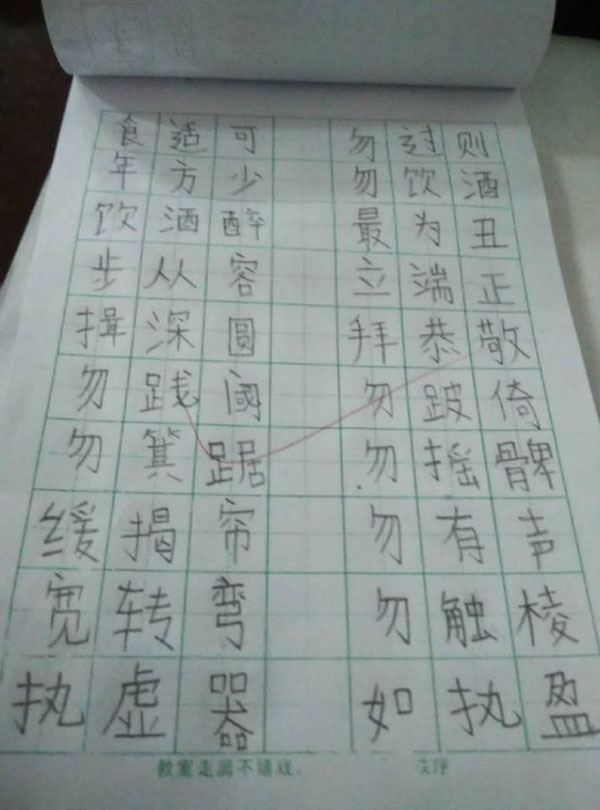 食适可 勿过则
年方少 勿饮酒
饮酒醉 最为丑
步从容 立端正
揖深圆 拜恭敬
勿践阈 勿跛倚
勿箕踞 勿摇髀
缓揭帘 勿有声
宽转弯 勿触棱
执虚器 如执盈
教室走廊不嬉戏